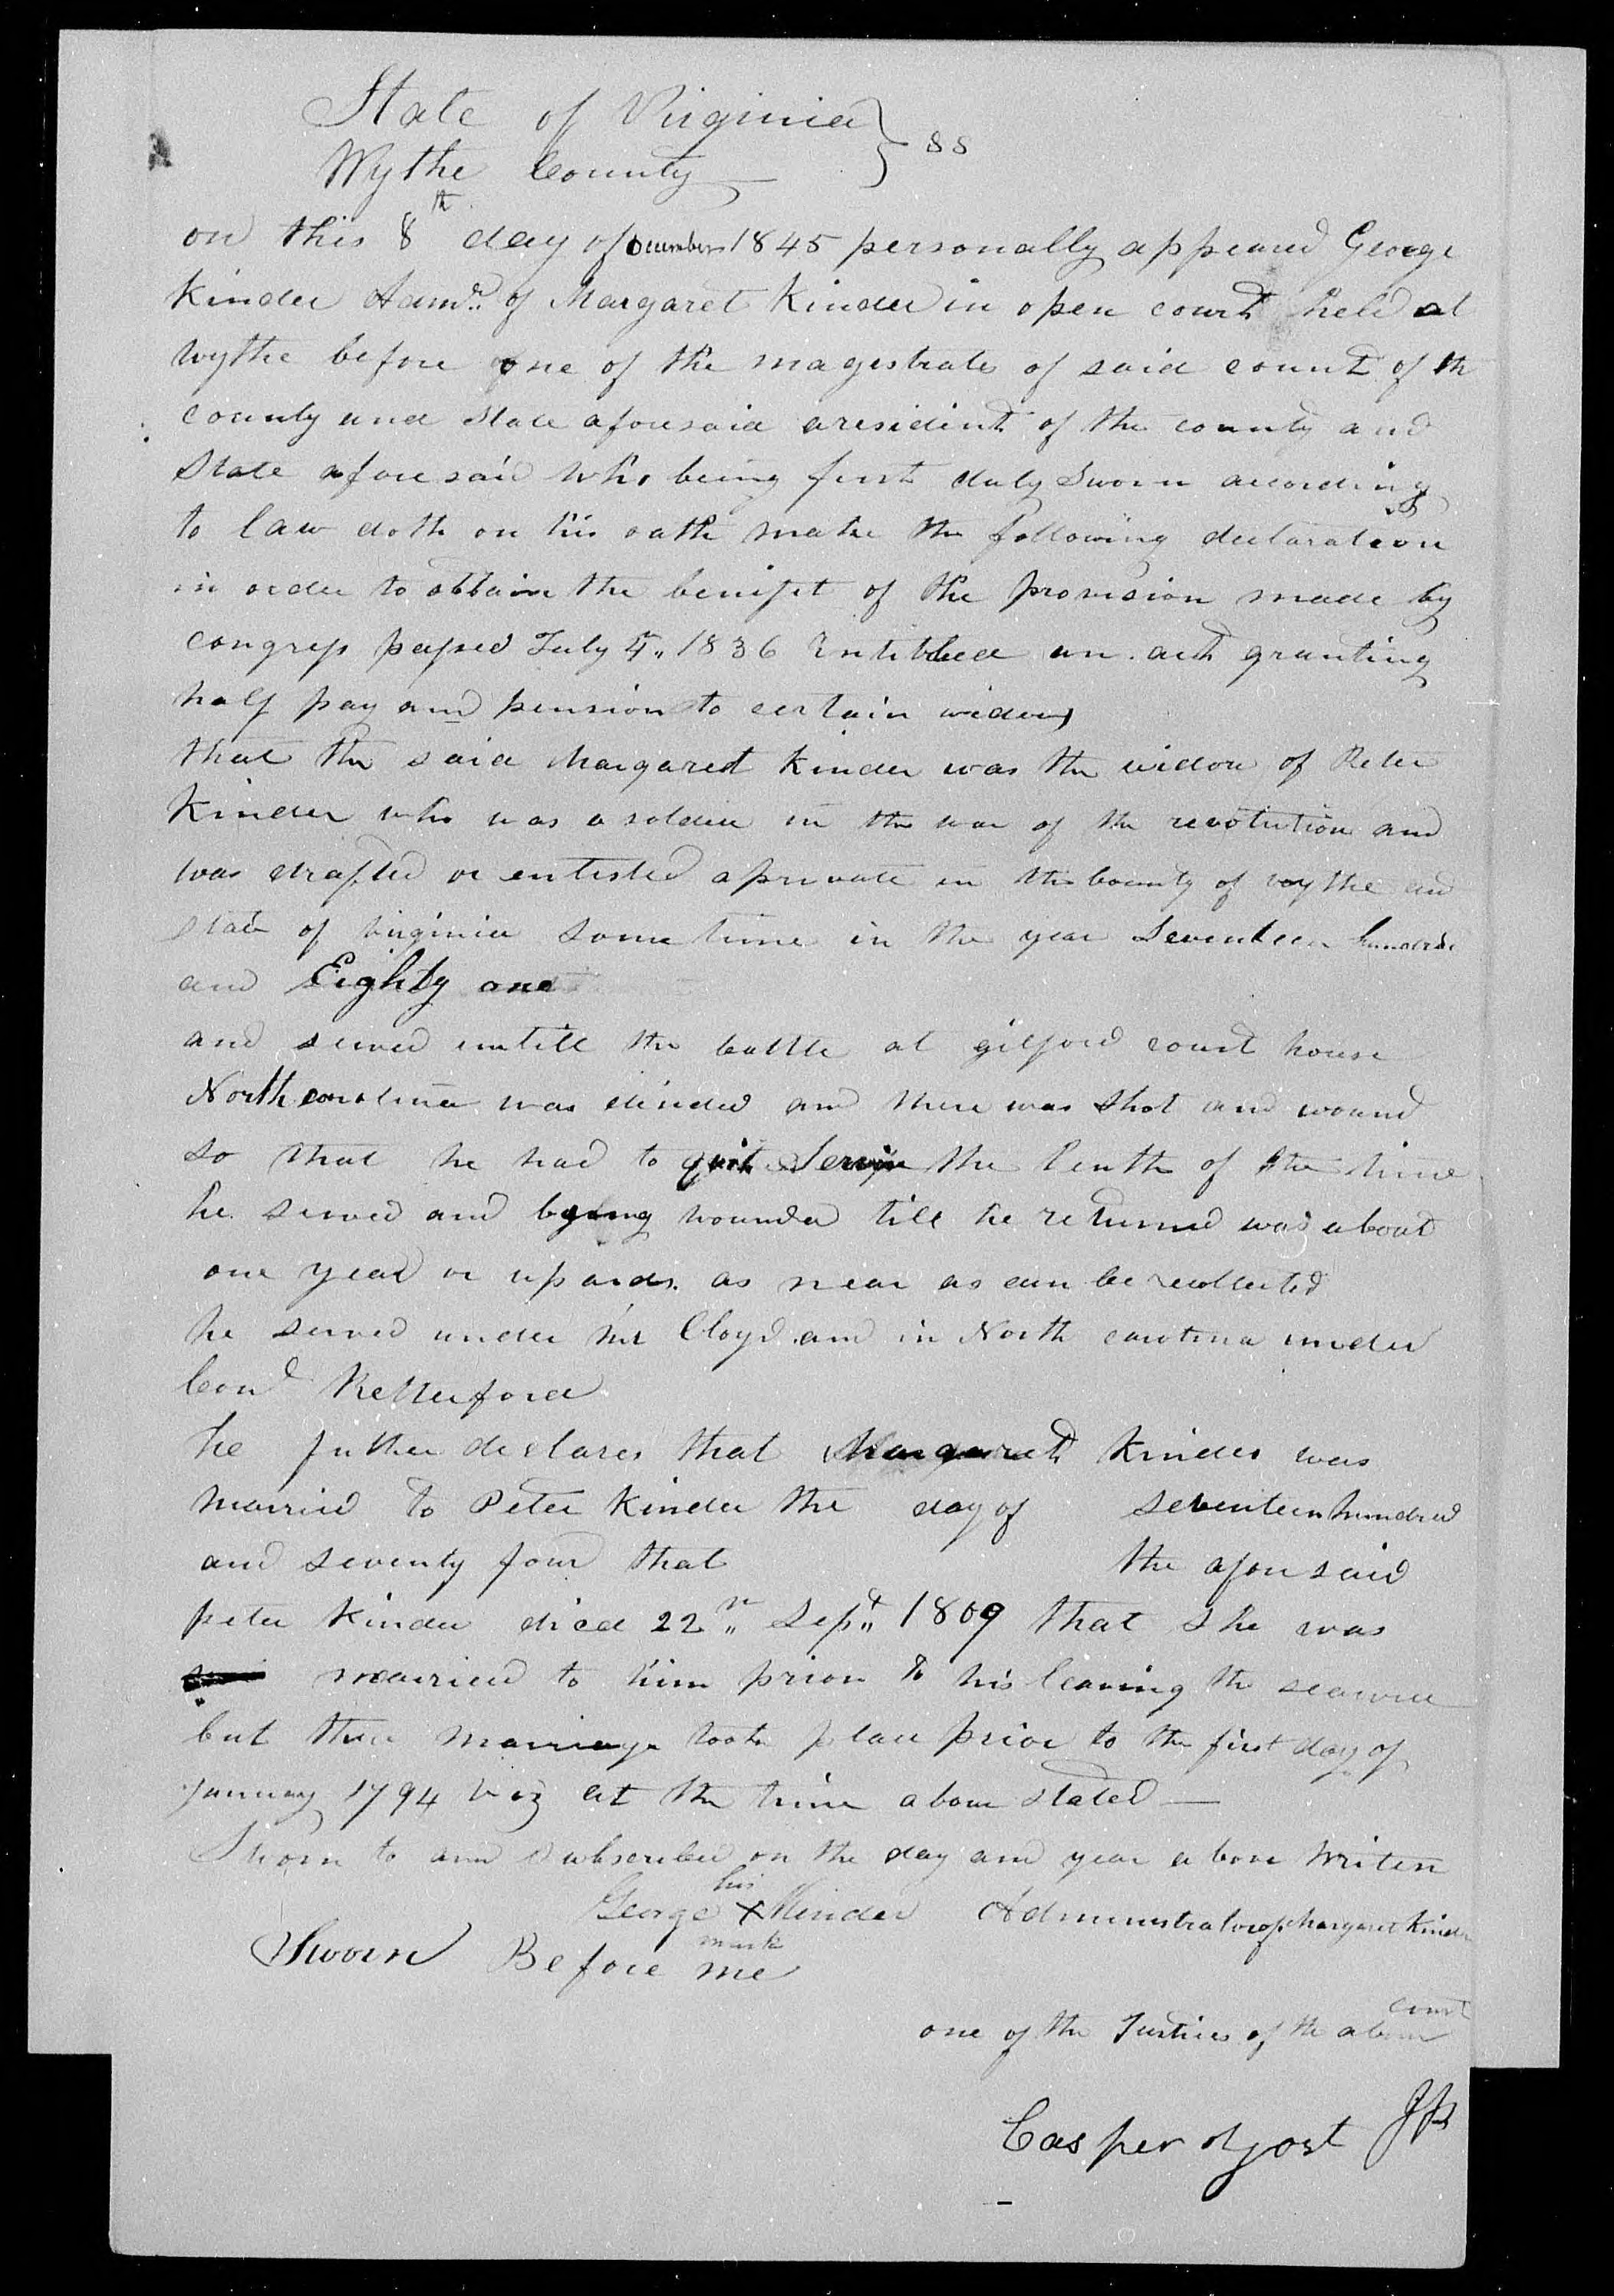 State of Virginia } SS
Wythe County
on this 8th day of December 1845 personally appeared George
Kinder Admr. of Margaret Kinder in open court held at
Wythe before one of the magestrates of said count of th
county and State aforesaid a resident of the county and
State afore said who being first duly Sworn according
to law doth on his oath make the following declaration
in order to obtain the benifet of the provision made by
congress passed July 4th 1836 Entitled an act granting
half pay and pension to certain widows
that the said Margaret Kinder was the widow of Peter
Kinder who was a soldier in the war of the revolution and
was drafted or enlisted a private in the County of wythe and
State of virginia some time in the year Seventeen hundred
and Eighty one
and served untill the battle at gilford court house
North carolina was ended and there was shot and wound
so that he had to quit Service the lenth of the time
he served and being wounded till he returned was about
one year or upards. as near as can be recollected
he served under Cloyd and in North carolina under
Retterford
he futher declares that Margaret Kinder was
married to Peter Kinder the day of seventeen hundred
and seventy four that the afore said
peter Kinder died 22nd Sept 1809 that she was
married to him prior to his leaving the searvice
but thier marriage took place prior to the first day of
January 1794 viz at the time above stated —
Sworn to and Subscribed on the day and year above writen
George his X mark Kinder Administrator of Margaret Kinder
Sworn Before me
one of the Justices of the above court
Casper Yost JP